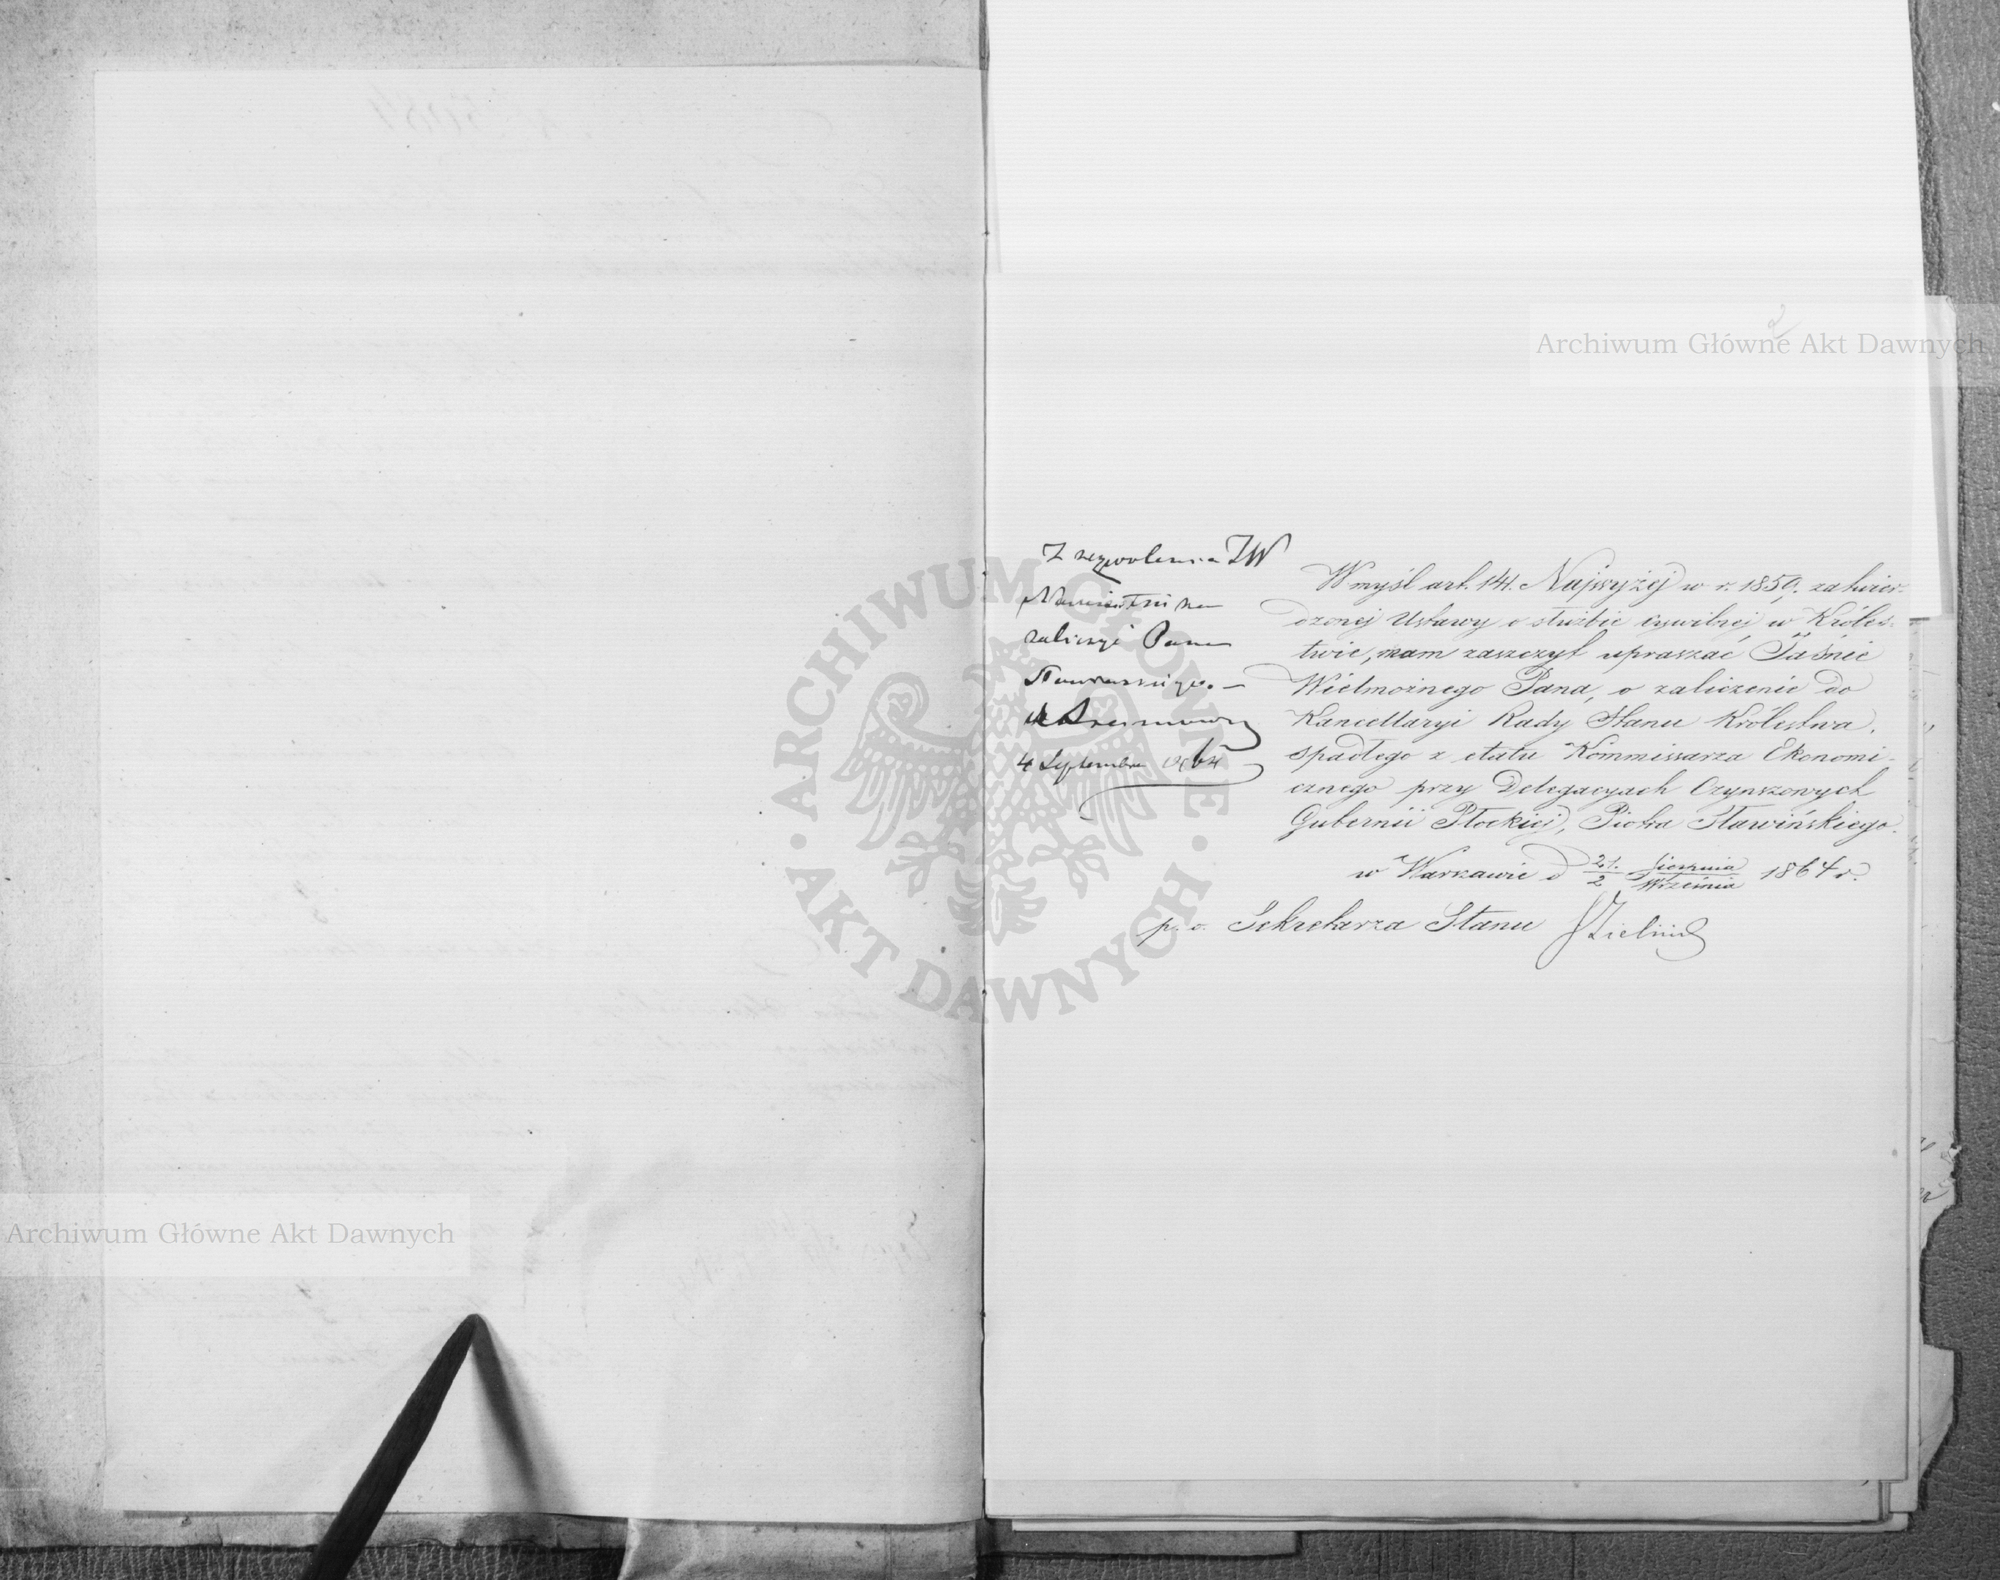 2
Archiwum Główne Akt Dawnych
Z zezwolenia JW
Namiestnika
zaliczyć Pana
Sławińskiego. —
4 Septembra 1864
W myśl art. 141. Najwyżej w r. 1859. zatwier-
dzonej Ustawy o służbie cywilnej w Króles-
twie, mam zaszczyt upraszać Jaśnie
Wielmożnego Pana, o zaliczenie do
Kancellaryi Rady Stanu Królestwa,
spadłego z etatu Kommissarza Ekonomi-
cznego przy Delegacyach Czynszowych
Gubernii Płockiej, Piotra Sławińskiego.
w Warszawie d 21. Sierpnia / 2 Września 1864 r.
p. o. Sekretarza Stanu
ARCHIWUM GŁÓWNE
AKT DAWNYCH
Archiwum Główne Akt Dawnych